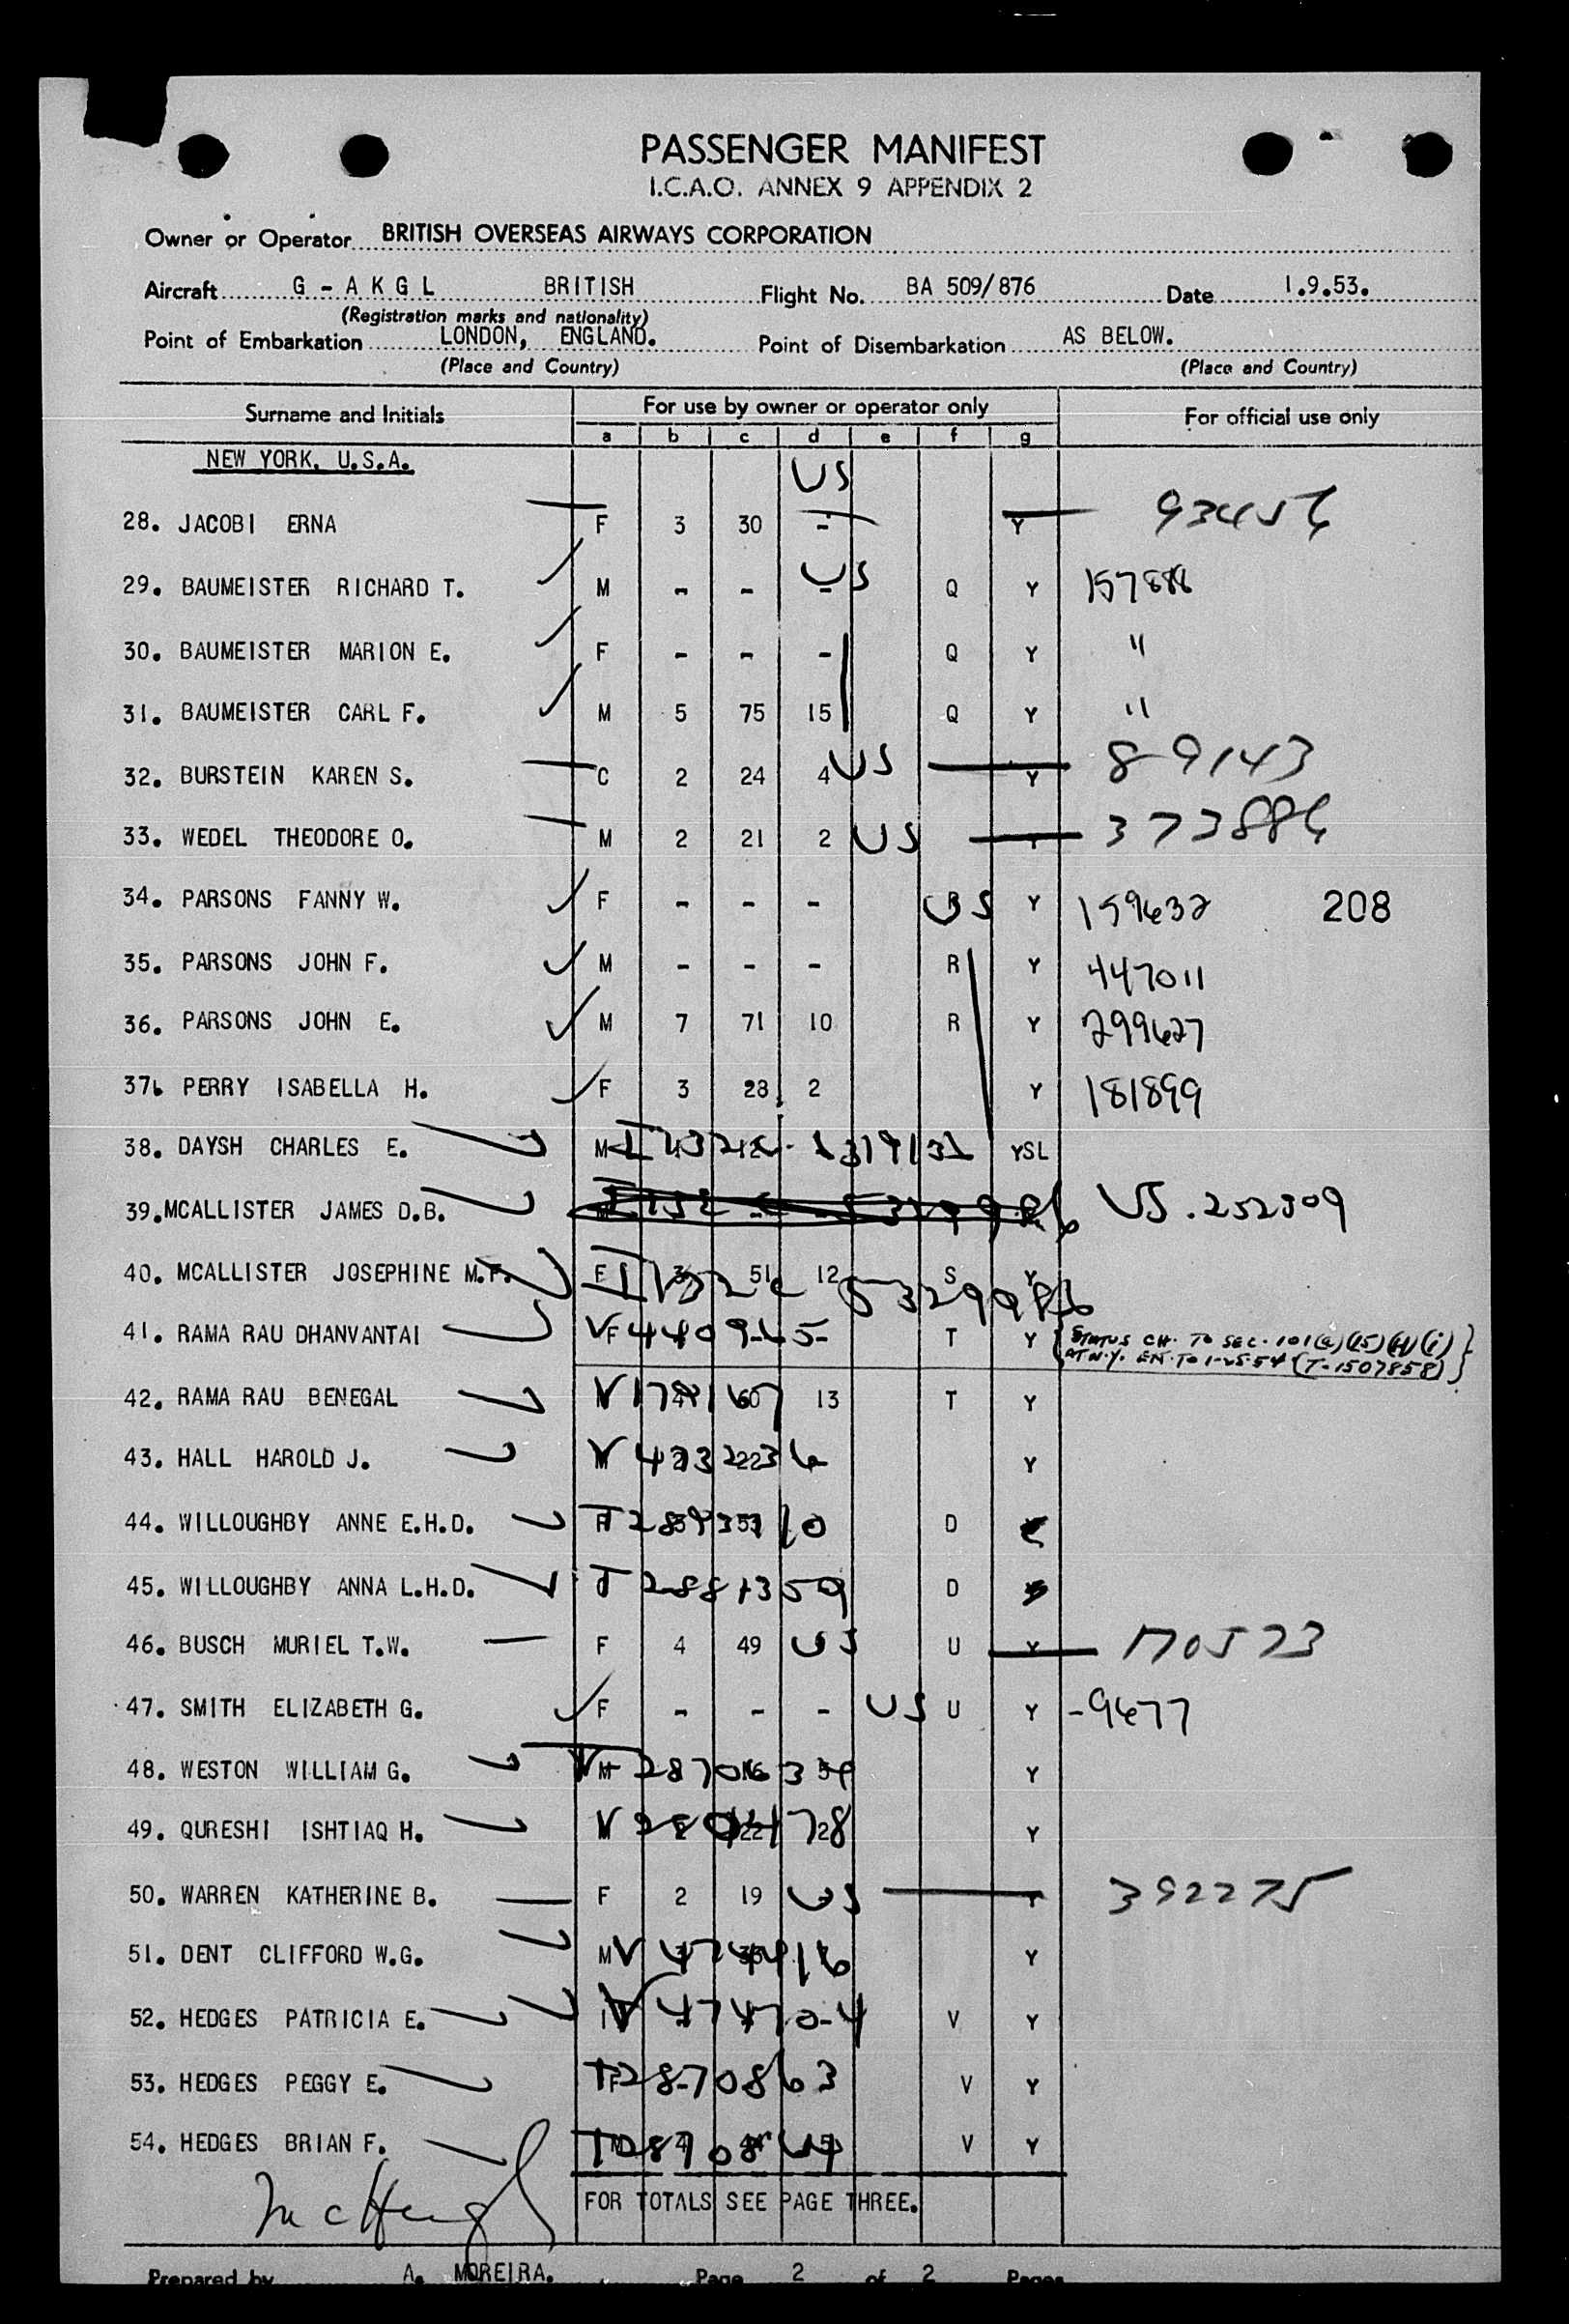 PASSENGER MANIFEST
I.C.A.O. ANNEX 9 APPENDIX 2
Owner or Operator BRITISH OVERSEAS AIRWAYS CORPORATION
Aircraft G - A K G L BRITISH Flight No. BA 509/876 Date 1.9.53.
(Registration marks and nationality)
Point of Embarkation LONDON, ENGLAND. Point of Disembarkation AS BELOW.
(Place and Country) (Place and Country)
Surname and Initials For use by owner or operator only For official use only
a b c d e f g
NEW YORK, U.S.A. US
28. JACOBI ERNA F 3 30 - Y
29. BAUMEISTER RICHARD T. M - - - US Q Y
30. BAUMEISTER MARION E. F - - - Q Y "
31. BAUMEISTER CARL F. M 5 75 15 Q Y "
32. BURSTEIN KAREN S. C 2 24 4 US Y 89143
33. WEDEL THEODORE O. M 2 21 2 US Y 373886
34. PARSONS FANNY W. F - - - US Y 159632 208
35. PARSONS JOHN F. M - - - R Y 447011
36. PARSONS JOHN E. M 7 71 10 R Y 299627
37. PERRY ISABELLA H. F 3 28 2 Y 181899
38. DAYSH CHARLES E. M YSL
39. MCALLISTER JAMES D.B. US. 252309
40. MCALLISTER JOSEPHINE M.F. F 3 51 12 S Y
41. RAMA RAU DHANVANTAI F T Y STATUS CH. TO SEC. 101(a)(15)(H)(i)
AT N.Y. EX. TO 1-25-54 (T-1507858)
42. RAMA RAU BENEGAL 13 T Y
43. HALL HAROLD J. Y
44. WILLOUGHBY ANNE E.H.D. D
45. WILLOUGHBY ANNA L.H.D. D
46. BUSCH MURIEL T.W. F 4 49 US U Y 170523
47. SMITH ELIZABETH G. F - - - US U Y -9677
48. WESTON WILLIAM G. M Y
49. QURESHI ISHTIAQ H. Y
50. WARREN KATHERINE B. F 2 19 US Y 392275
51. DENT CLIFFORD W.G. M Y
52. HEDGES PATRICIA E. V Y
53. HEDGES PEGGY E. F V Y
54. HEDGES BRIAN F. V Y
FOR TOTALS SEE PAGE THREE.
Prepared by A. MOREIRA. Page 2 of 2 Pages